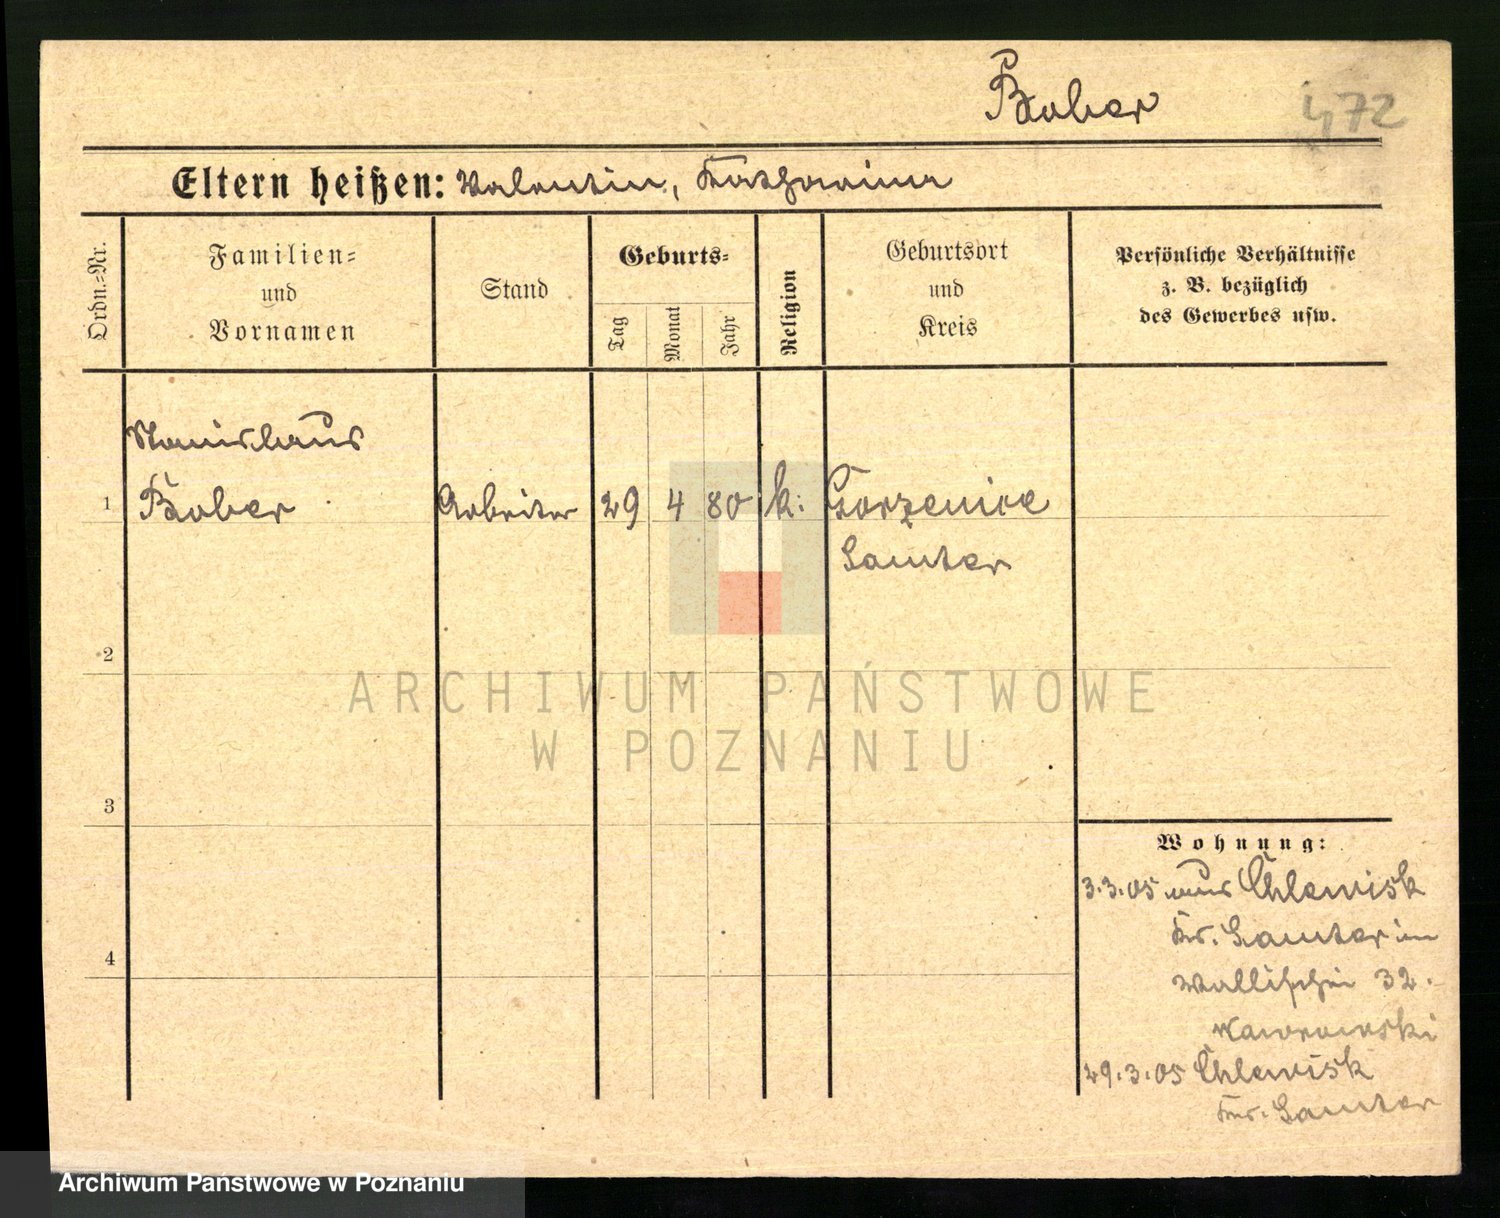 Bober
472
Eltern heißen: Valentin, Katharina
Ordn.-Nr.
Familien-
und
Vornamen
Stand
Geburts-
Tag
Monat
Jahr
Religion
Geburtsort
und
Kreis
Persönliche Verhältnisse
z. B. bezüglich
des Gewerbes usw.
Stanislaus
1 Bober Arbeiter 29 4 80 k. Gorzenice
Samter
2
ARCHIWUM PAŃSTWOWE
W POZNANIU
3
Wohnung:
3.3.05 aus Chlewisk
Kr. Samter in
Wallischei 32.
4
29.3.05 Chlewisk
Kr. Samter
Archiwum Państwowe w Poznaniu